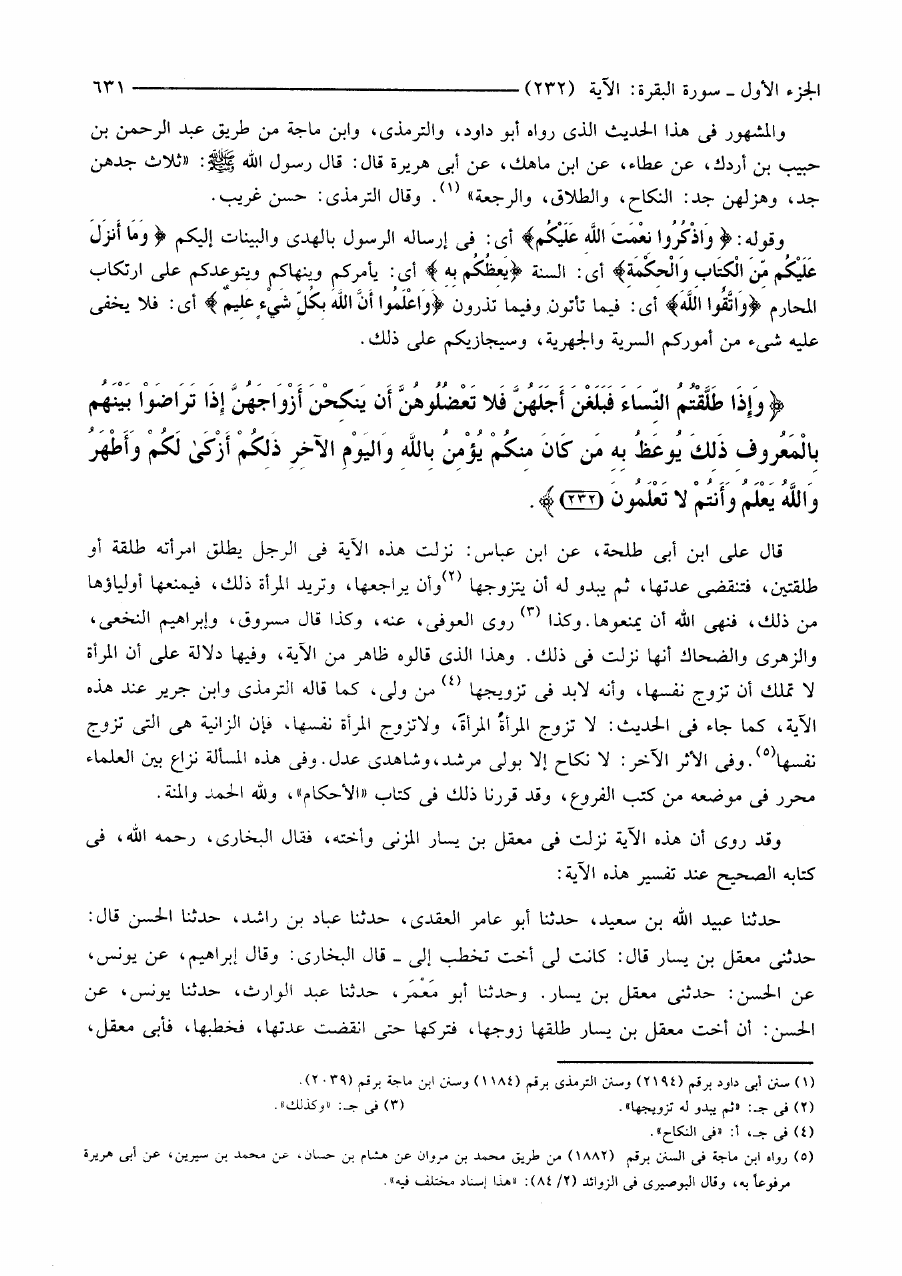 الجزء الأول ـ سورة البقرة: الآية (٢٣٢) ٦٣١
والمشهور فى هذا الحديث الذى رواه أبو داود، والترمذى، وابن ماجة من طريق عبد الرحمن بن
حبيب بن أردك، عن عطاء، عن ابن ماهك، عن أبى هريرة قال: قال رسول الله ﷺ: «ثلاث جدهن
جد، وهزلهن جد: النكاح، والطلاق، والرجعة» (١). وقال الترمذى: حسن غريب.
وقوله: ﴿ وَاذْكُرُوا نِعْمَتَ اللَّهِ عَلَيْكُمْ﴾ أى: فى إرساله الرسول بالهدى والبينات إليكم ﴿ وَمَا أَنزَلَ
عَلَيْكُم مِّنَ الْكِتَابِ وَالْحِكْمَةِ﴾ أى: السنة ﴿يَعِظُكُم بِهِ ﴾ أى: يأمركم وينهاكم ويتوعدكم على ارتكاب
المحارم ﴿وَاتَّقُوا اللَّهَ﴾ أى: فيما تأتون وفيما تذرون ﴿وَاعْلَمُوا أَنَّ اللَّهَ بِكُلِّ شَيْءٍ عَلِيمٌ ﴾ أى: فلا يخفى
عليه شىء من أموركم السرية والجهرية، وسيجازيكم على ذلك.
﴿ وَإِذَا طَلَّقْتُمُ النِّسَاءَ فَبَلَغْنَ أَجَلَهُنَّ فَلا تَعْضُلُوهُنَّ أَن يَنكِحْنَ أَزْوَاجَهُنَّ إِذَا تَرَاضَوْا بَيْنَهُم
بِالْمَعْرُوفِ ذَلِكَ يُوعَظُ بِهِ مَن كَانَ مِنكُمْ يُؤْمِنُ بِاللَّهِ وَالْيَوْمِ الآخِرِ ذَلِكُمْ أَزْكَىٰ لَكُمْ وَأَطْهَرُ
وَاللَّهُ يَعْلَمُ وَأَنتُمْ لا تَعْلَمُونَ (٢٣٢) ﴾.
قال على ابن أبى طلحة، عن ابن عباس: نزلت هذه الآية فى الرجل يطلق امرأته طلقة أو
طلقتين، فتنقضى عدتها، ثم يبدو له أن يتزوجها (٢) وأن يراجعها، وتريد المرأة ذلك، فيمنعها أولياؤها
من ذلك، فنهى الله أن يمنعوها. وكذا (٣) روى العوفى، عنه، وكذا قال مسروق، وإبراهيم النخعى،
والزهرى والضحاك أنها نزلت فى ذلك. وهذا الذى قالوه ظاهر من الآية، وفيها دلالة على أن المرأة
لا تملك أن تزوج نفسها، وأنه لابد فى تزويجها (٤) من ولى، كما قاله الترمذى وابن جرير عند هذه
الآية، كما جاء فى الحديث: لا تزوج المرأةُ المرأةَ، ولاتزوج المرأة نفسها، فإن الزانية هى التى تزوج
نفسها(٥). وفى الأثر الآخر: لا نكاح إلا بولى مرشد، وشاهدى عدل. وفى هذه المسألة نزاع بين العلماء
محرر فى موضعه من كتب الفروع، وقد قررنا ذلك فى كتاب «الأحكام»، ولله الحمد والمنة.
وقد روى أن هذه الآية نزلت فى معقل بن يسار المزنى وأخته، فقال البخارى، رحمه الله، فى
كتابه الصحيح عند تفسير هذه الآية:
حدثنا عبيد الله بن سعيد، حدثنا أبو عامر العقدى، حدثنا عباد بن راشد، حدثنا الحسن قال:
حدثنى معقل بن يسار قال: كانت لى أخت تخطب إلى ـ قال البخارى: وقال إبراهيم، عن يونس،
عن الحسن: حدثنى معقل بن يسار. وحدثنا أبو مَعْمَر، حدثنا عبد الوارث، حدثنا يونس، عن
الحسن: أن أخت معقل بن يسار طلقها زوجها، فتركها حتى انقضت عدتها، فخطبها، فأبى معقل،
(١) سنن أبى داود برقم (٢١٩٤) وسنن الترمذى برقم (١١٨٤) وسنن ابن ماجة برقم (٢٠٣٩).
(٢) فى جـ: «ثم يبدو له تزويجها». (٣) فى جـ: «وكذلك».
(٤) فى جـ، أ: «فى النكاح».
(٥) رواه ابن ماجة فى السنن برقم (١٨٨٢) من طريق محمد بن مروان عن هشام بن حسان، عن محمد بن سيرين، عن أبى هريرة
مرفوعاً به، وقال البوصيرى فى الزوائد (٢/ ٨٤): «هذا إسناد مختلف فيه».